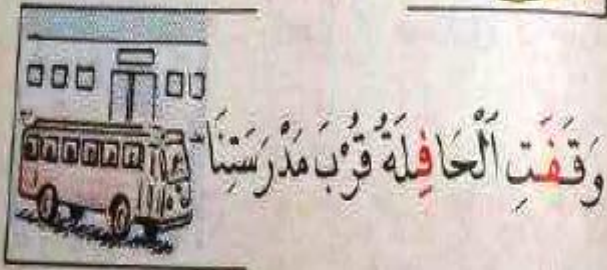 وَقَفَتِ ٱلْحَافِلَةُ قُرْبَ مَدْرَسَتِنَا